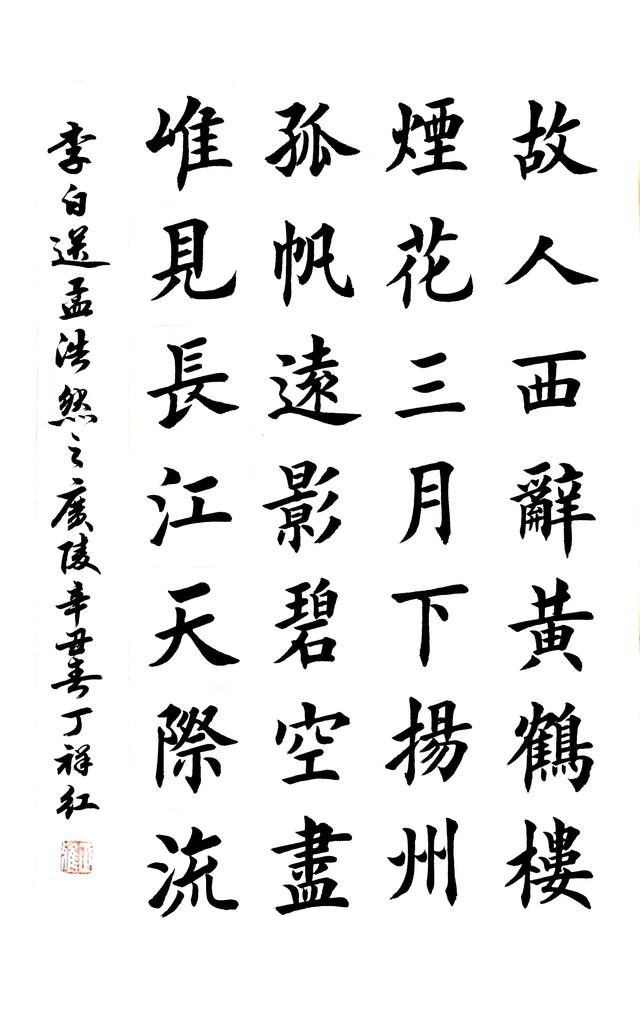 故人西辭黃鶴樓
煙花三月下揚州
孤帆遠影碧空盡
唯見長江天際流
李白送孟浩然之廣陵辛丑春丁祥紅